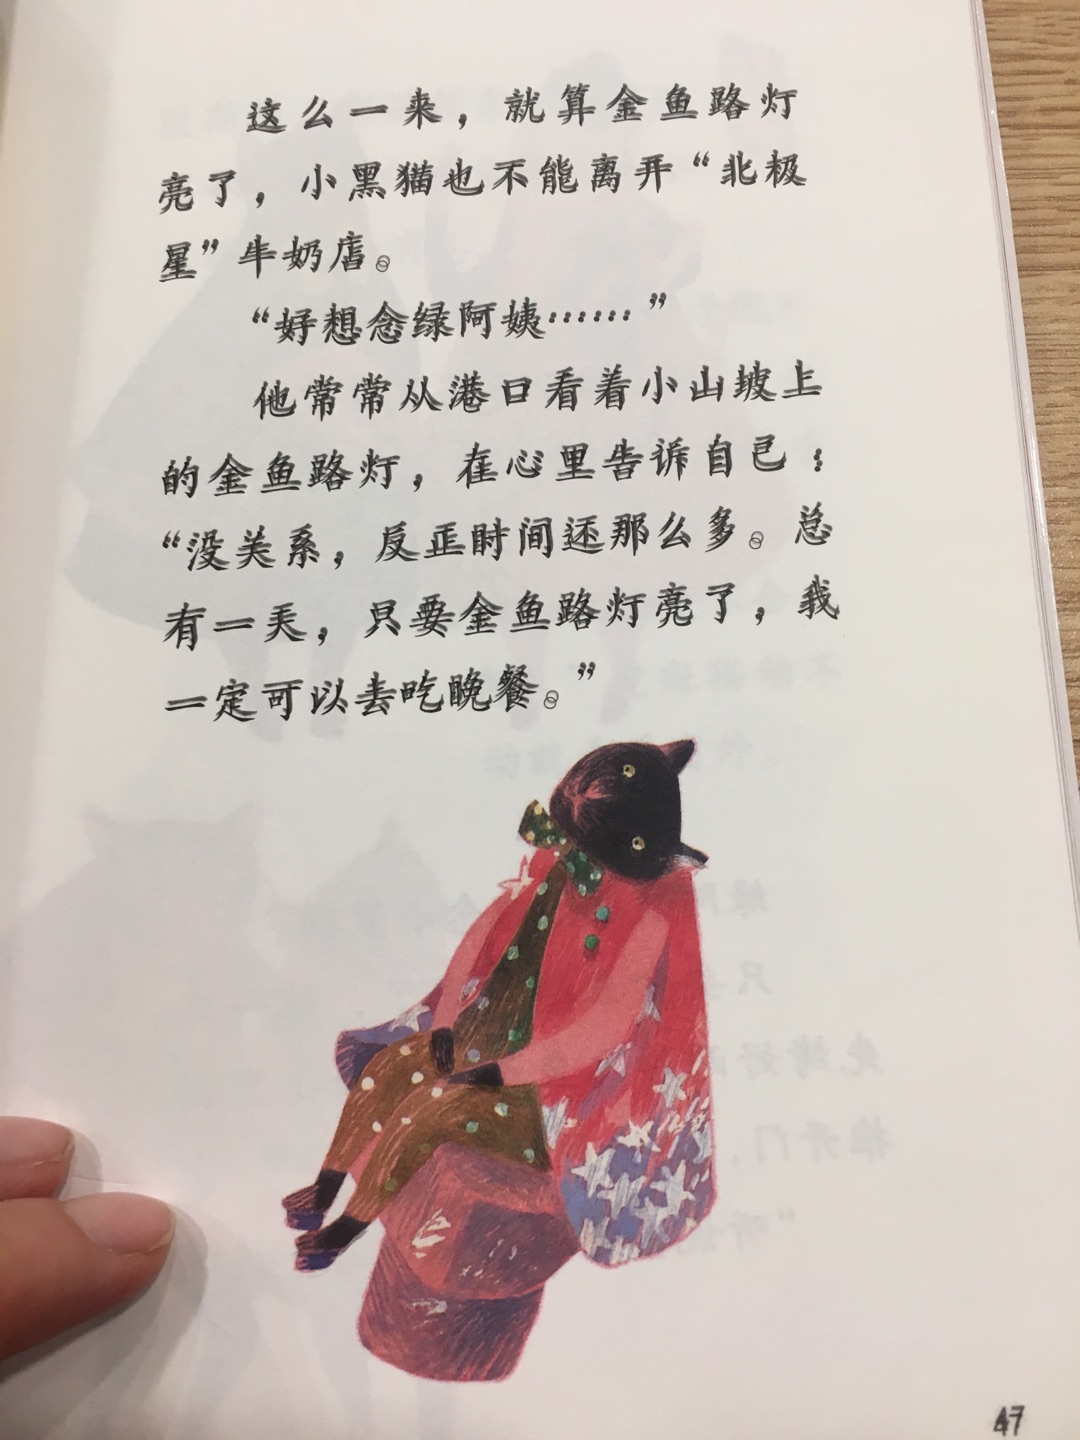 这么一来，就算金鱼路灯
亮了，小黑猫也不能离开“北极
星”牛奶店。
“好想念绿阿姨……”
他常常从港口看着小山坡上
的金鱼路灯，在心里告诉自己：
“没关系，反正时间还那么多。总
有一天，只要金鱼路灯亮了，我
一定可以去吃晚餐。”
47